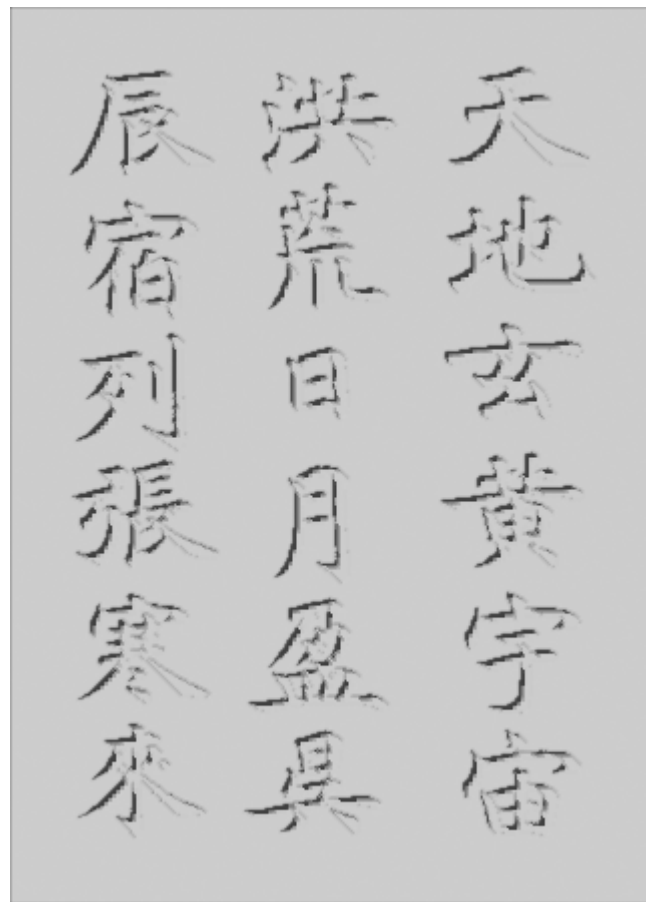 天地玄黄宇宙
洪荒日月盈
辰宿列張寒來